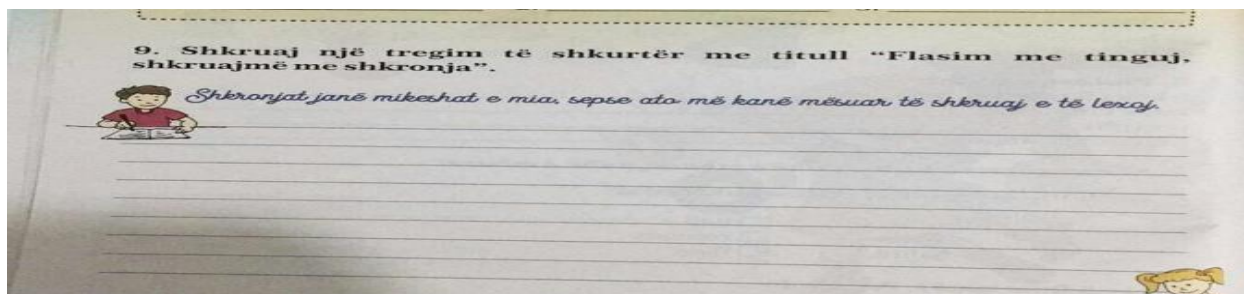 9. Shkruaj një tregim të shkurtër me titull “Flasim me tinguj,
shkruajmë me shkronja”.
Shkronjat janë mikeshat e mia, sepse ato më kanë mësuar të shkruaj e të lexoj.